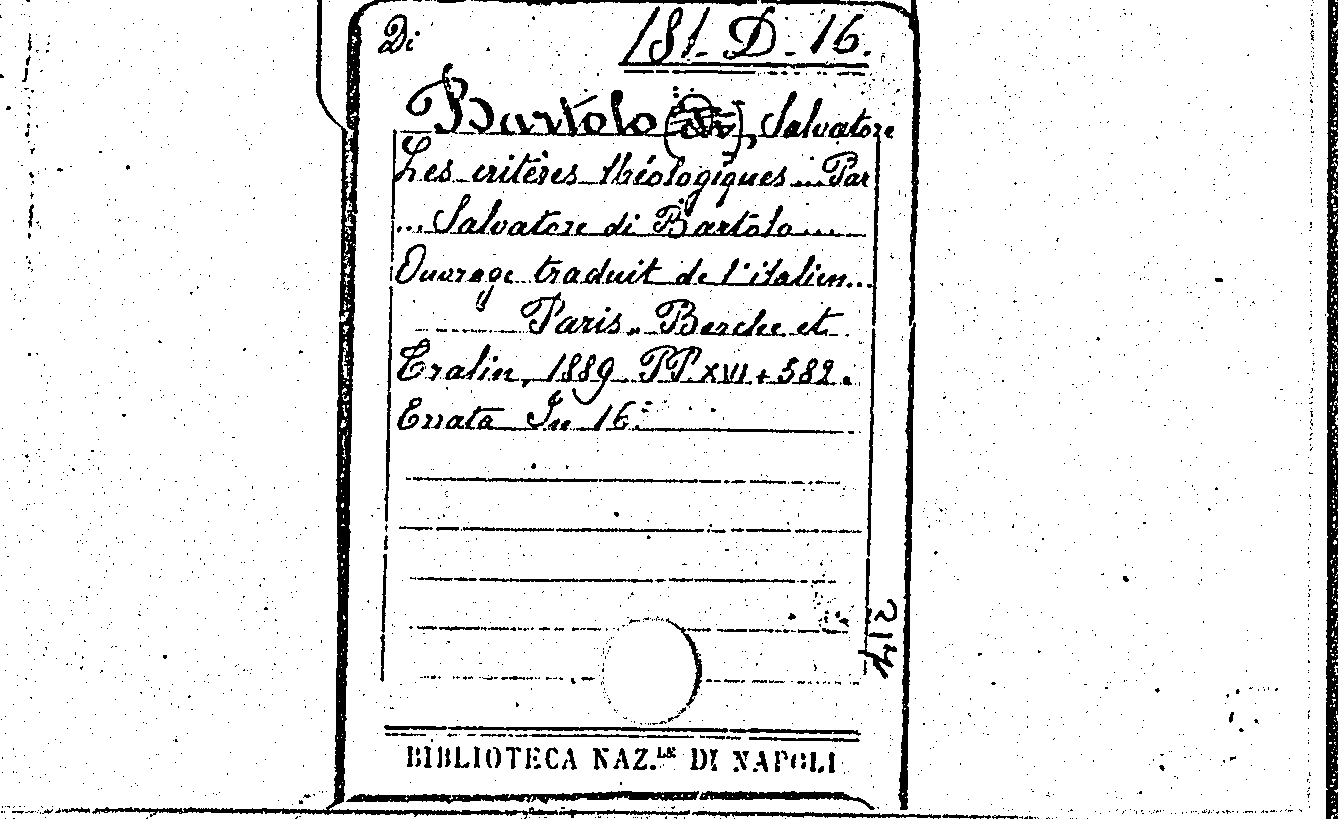 Di
181. D. 16.
Bartolo (di), Salvatore
Les critères théologiques ... Par
... Salvatore di Bartolo ...
Ouvrage traduit de l'italien...
Paris, Berche et
Tralin, 1889. PP. XVI + 582.
Errata In 16.°
214
BIBLIOTECA NAZ.LE DI NAPOLI